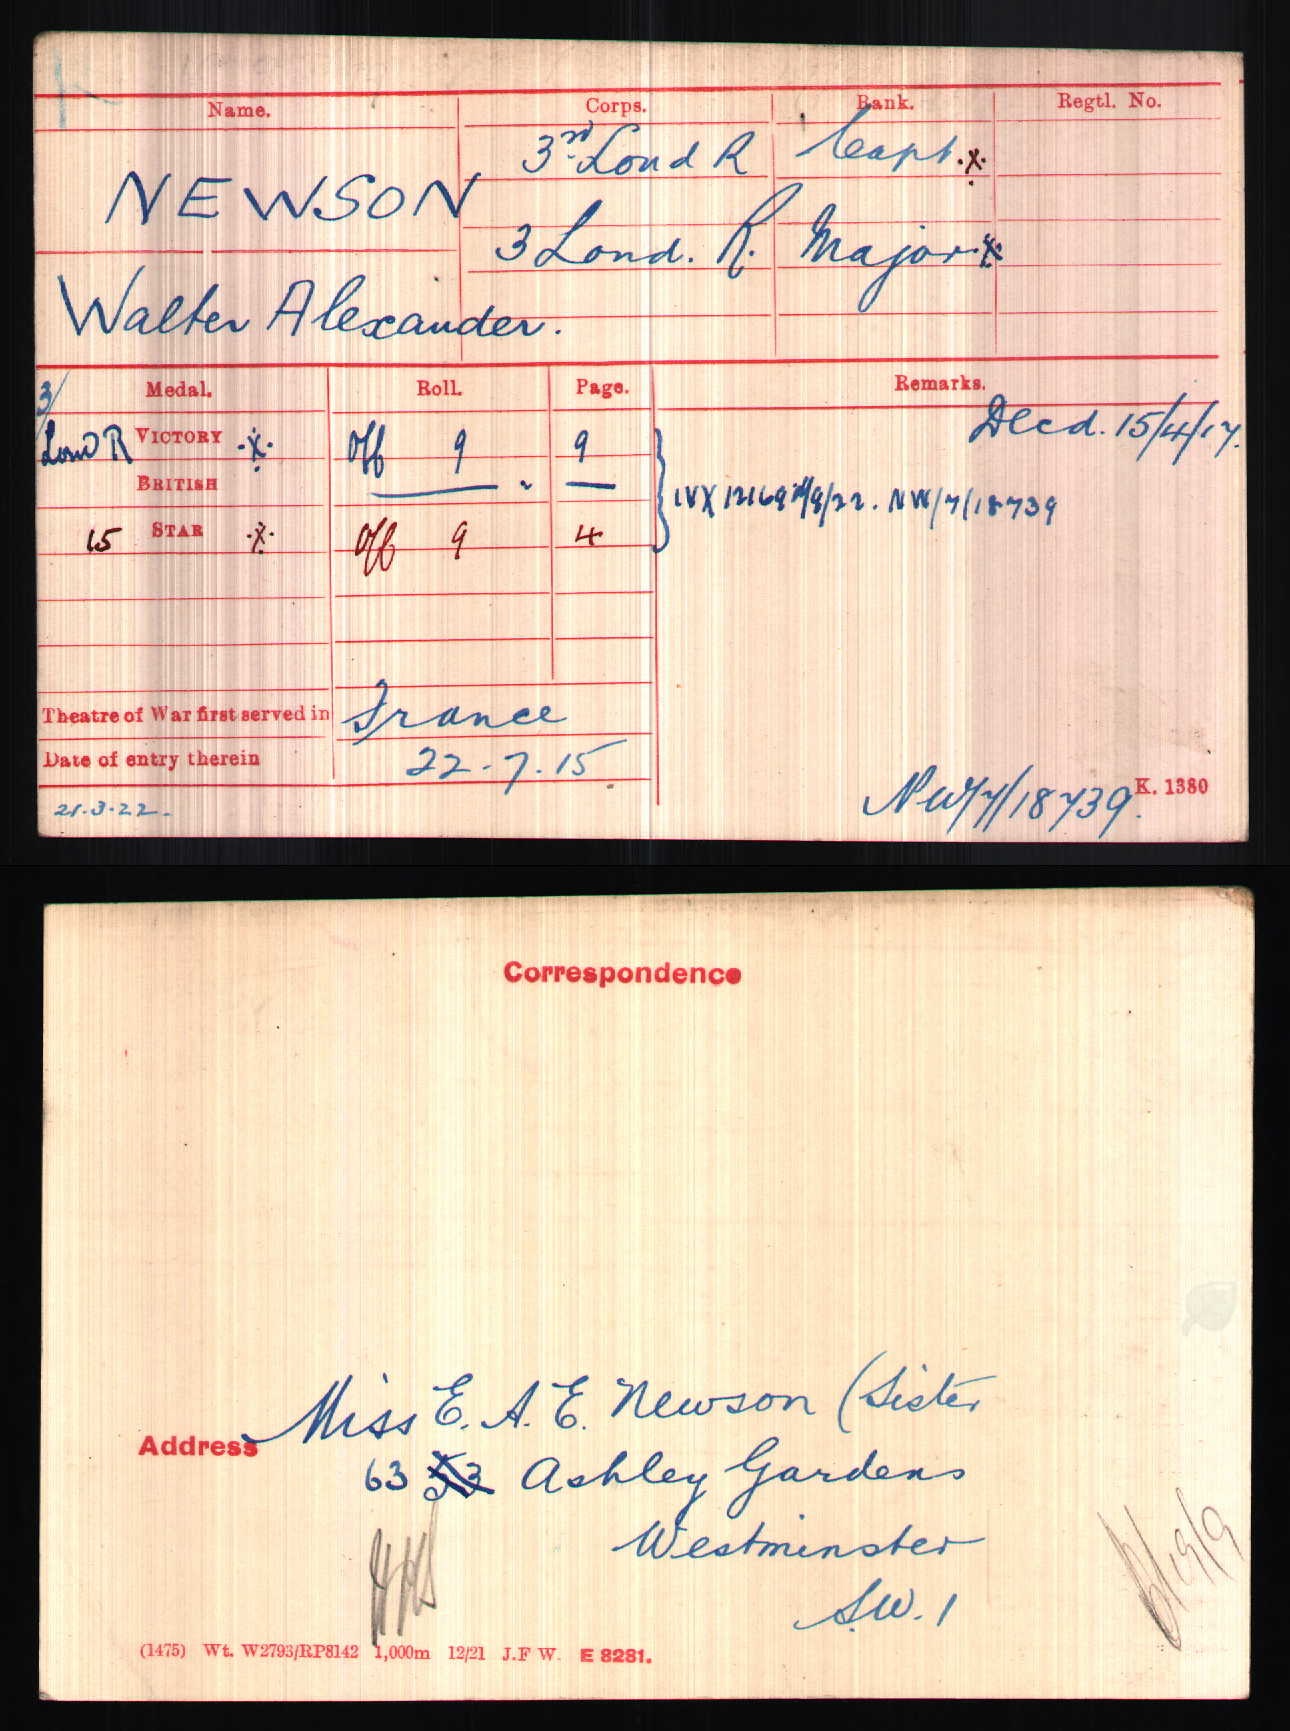 Name. Corps. Rank. Regtl. No.
3rd Lond R Capt. X
NEWSON
3 Lond. R. Major. X
Walter Alexander.
Medal. Roll. Page. Remarks.
3/ Decd. 15/4/17.
Lond R VICTORY X Off 9 9
BRITISH
IVX 12169 /9/22. NW/7/18739
15 STAR X Off 9 4
Theatre of War first served in France
Date of entry therein 22.7.15
21.3.22. NW/7/18739. K. 1380
Correspondence
Miss E. A. E. Newson (Sister
Address
63 53 Ashley Gardens
Westminster
S.W.1
(1475) Wt. W2793/RP8142 1,000m 12/21 J.F W. E 8281.